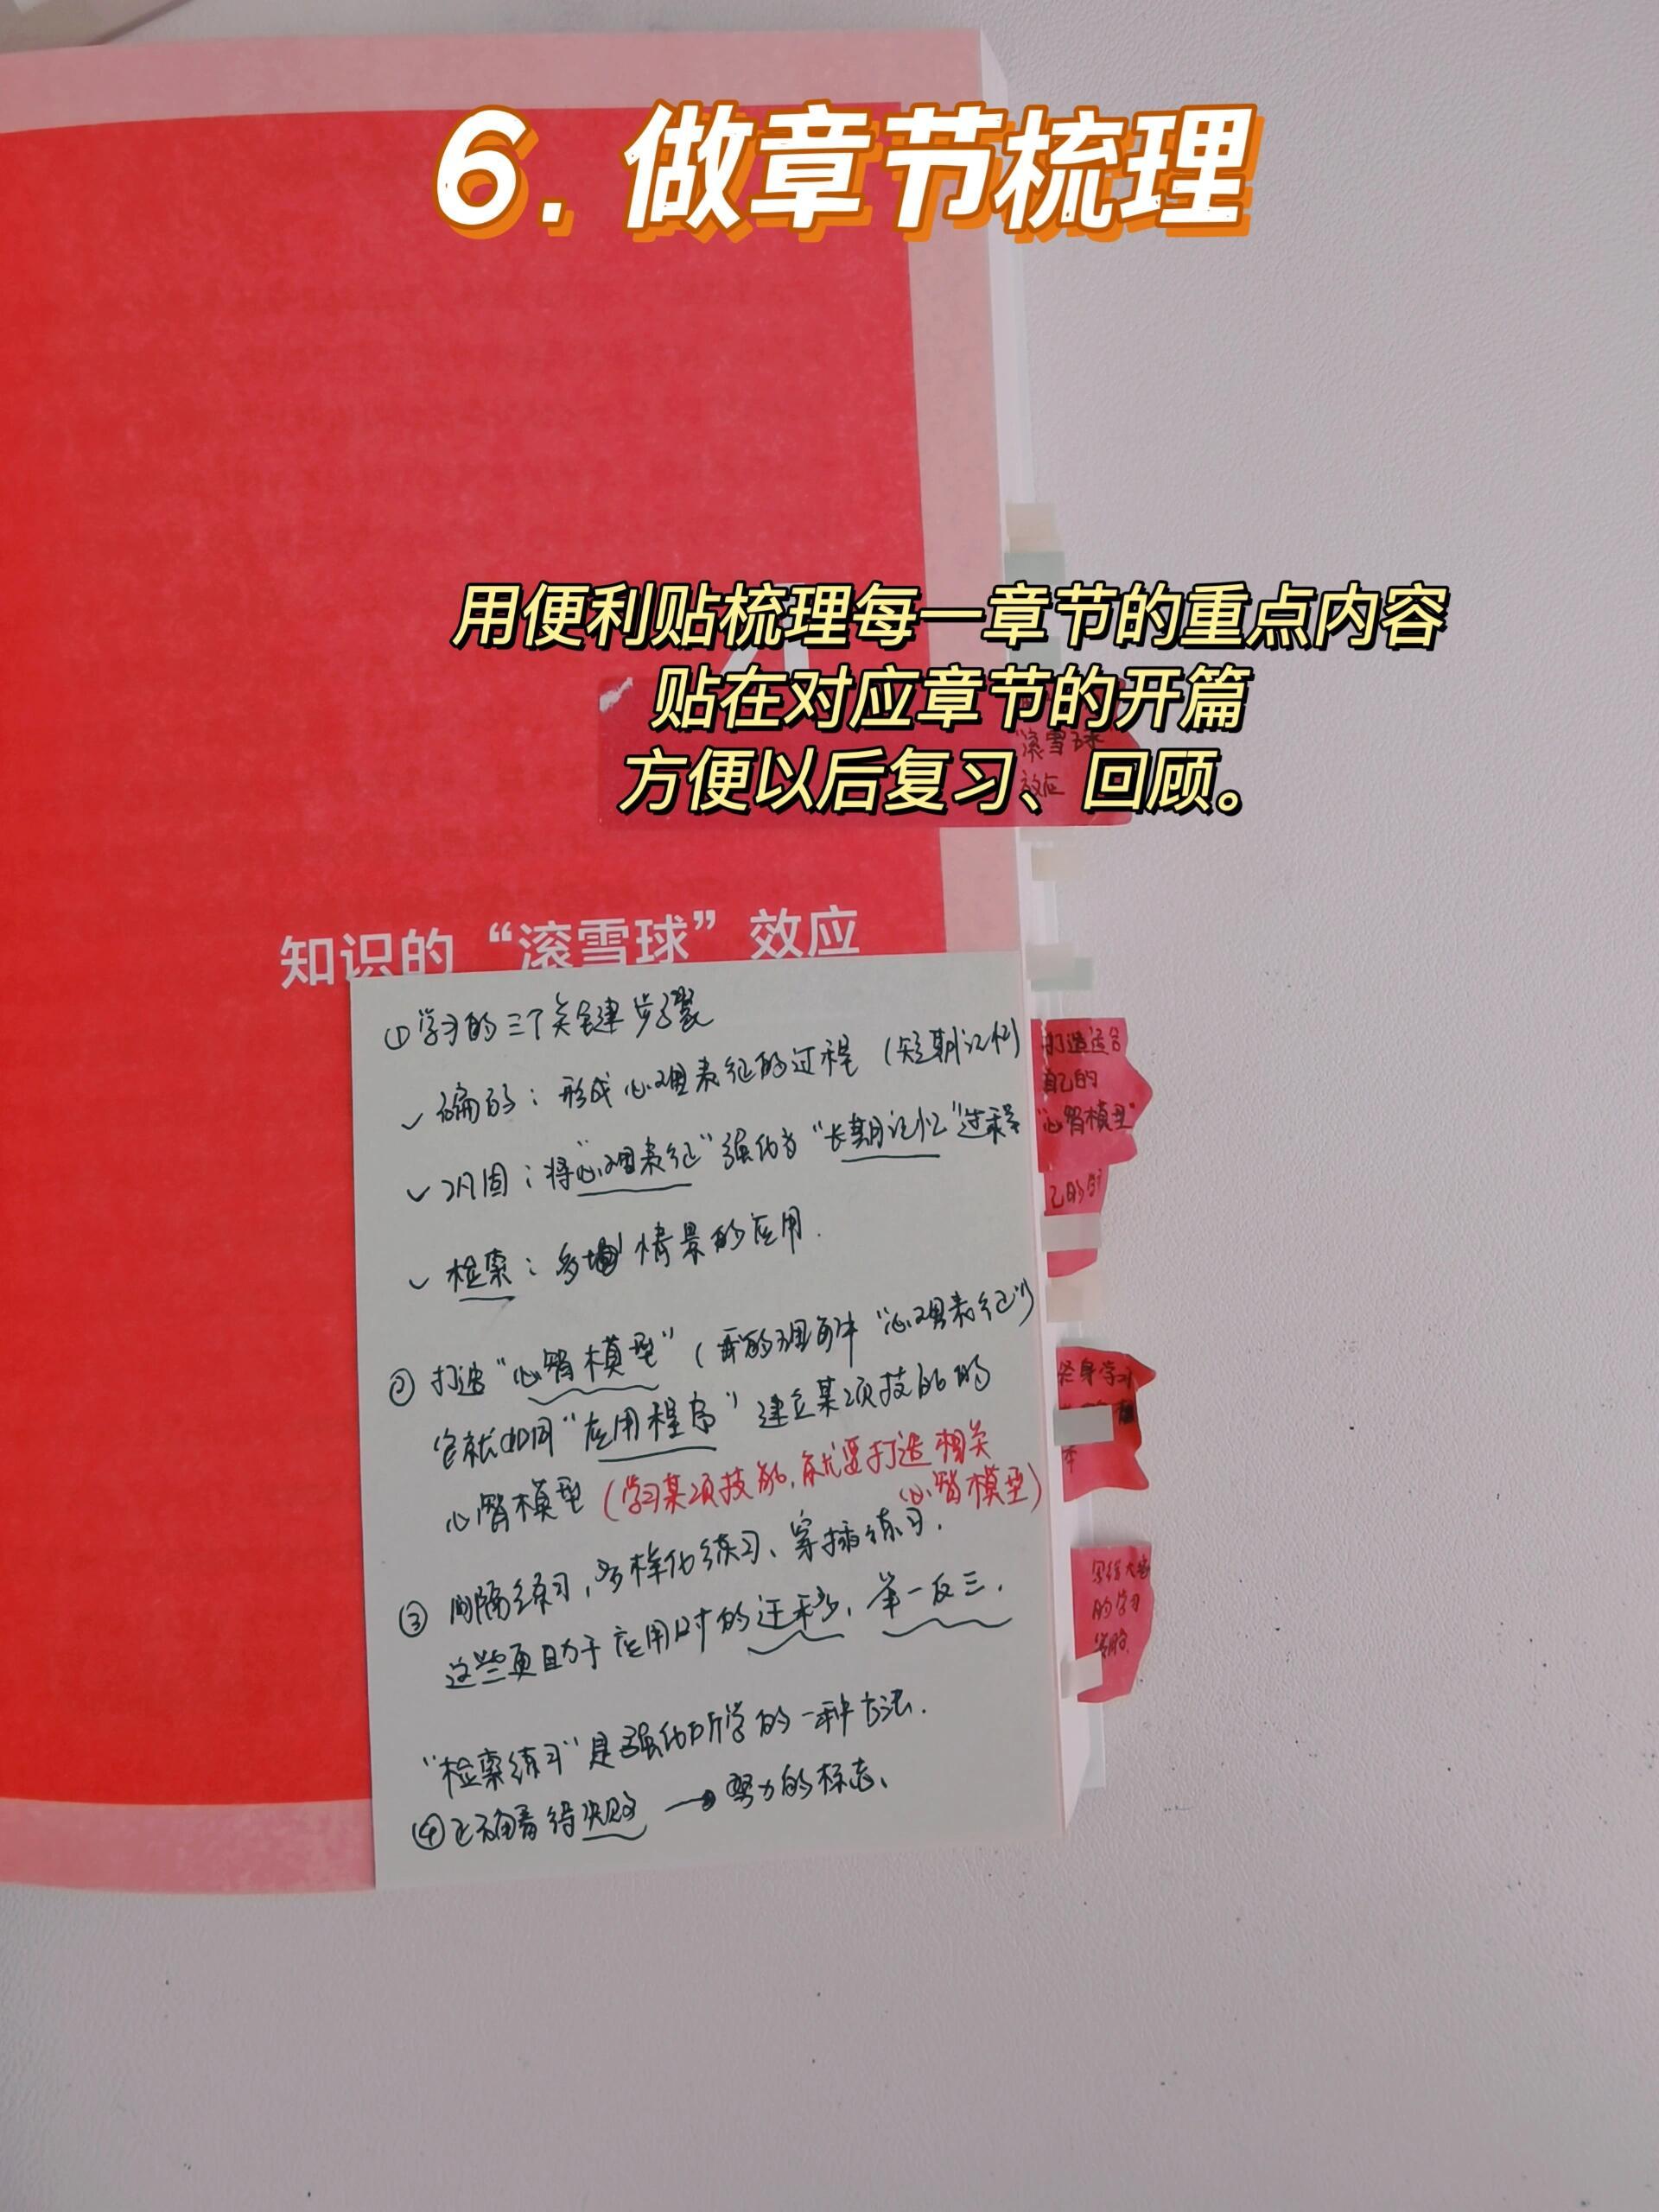 6. 做章节梳理
用便利贴梳理每一章节的重点内容
贴在对应章节的开篇
方便以后复习、回顾。
"滚雪球"
效应
知识的“滚雪球”效应
①学习的三个关键步骤
✓ 编码：形成心理表征的过程（短期记忆）
✓ 巩固：将"心理表征"强化为"长期记忆"过程
✓ 检索：多 情景的应用.
② 打造"心智模型"（我的理解"心理表征"）
它就如同"应用程序"建立某项技能的
心智模型（学习某项技能,就要打造相关
心智模型）
③ 间隔练习,多样化练习、穿插练习.
这些更助于应用时的迁移、举一反三.
"检索练习"是强化所学的一种方法.
④正确看待失败 → 努力的标志、
打造适合
自己的
"心智模型"
终身学习
本
写给大家
的学习
策略